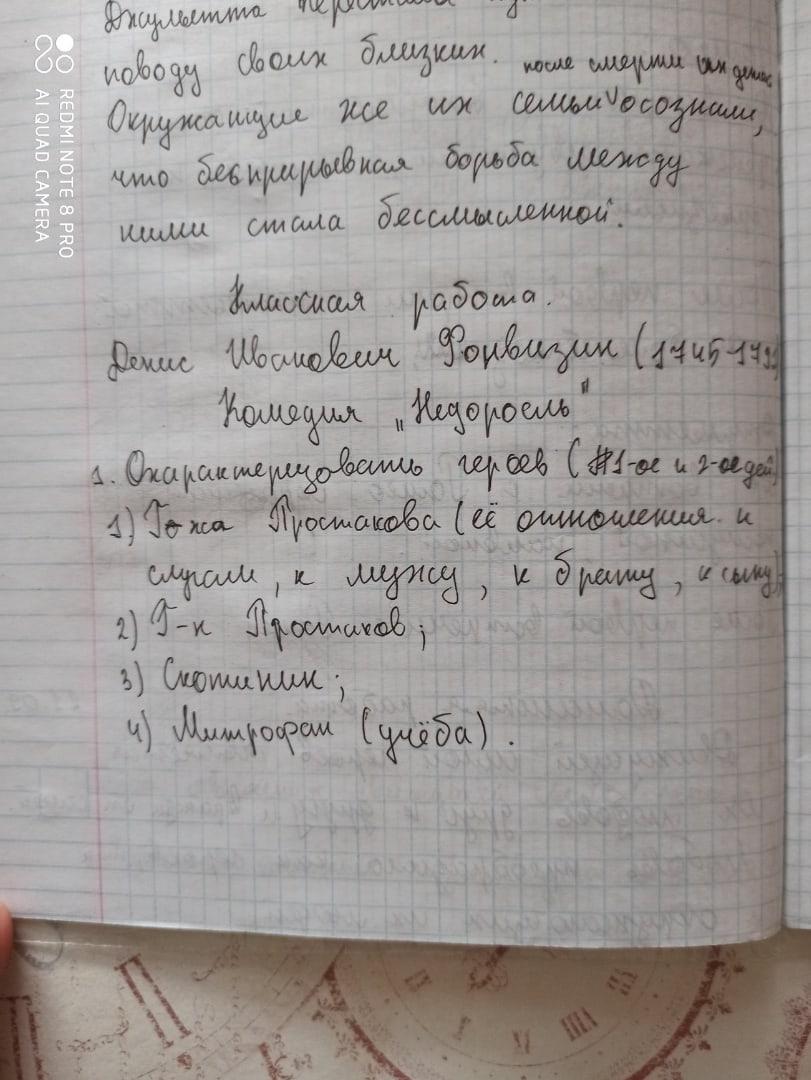 REDMI NOTE 8 PRO
AI QUAD CAMERA
Джульетта
поводу своих близких. после смерти их детей
Окружающие же их семьи осознали,
что беспрырывная борьба между
ними стала бессмысленной.
Классная работа.
Денис Иванович Фонвизин (1745-179
Комедия „Недоросль"
1. Охарактеризовать героев (1-ое и 2-ое дей
1) Г-жа Простакова (её отношения к
слугам, к мужу, к брату, к сыну)
2) Г-н Простаков;
3) Скотинин;
4) Митрофан (учёба).